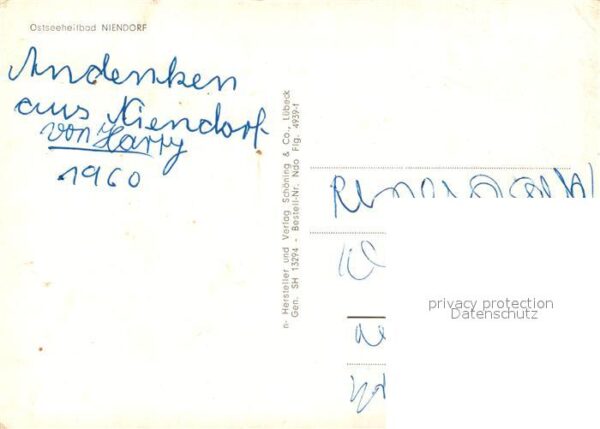 Ostseeheilbad NIENDORF
Andenken
aus Niendorf
von Harry
1960
n- Hersteller und Verlag Schöning & Co., Lübeck
Gen. SH 13294 - Bestell-Nr. Ndo Flg. 4939-t
privacy protection
Datenschutz